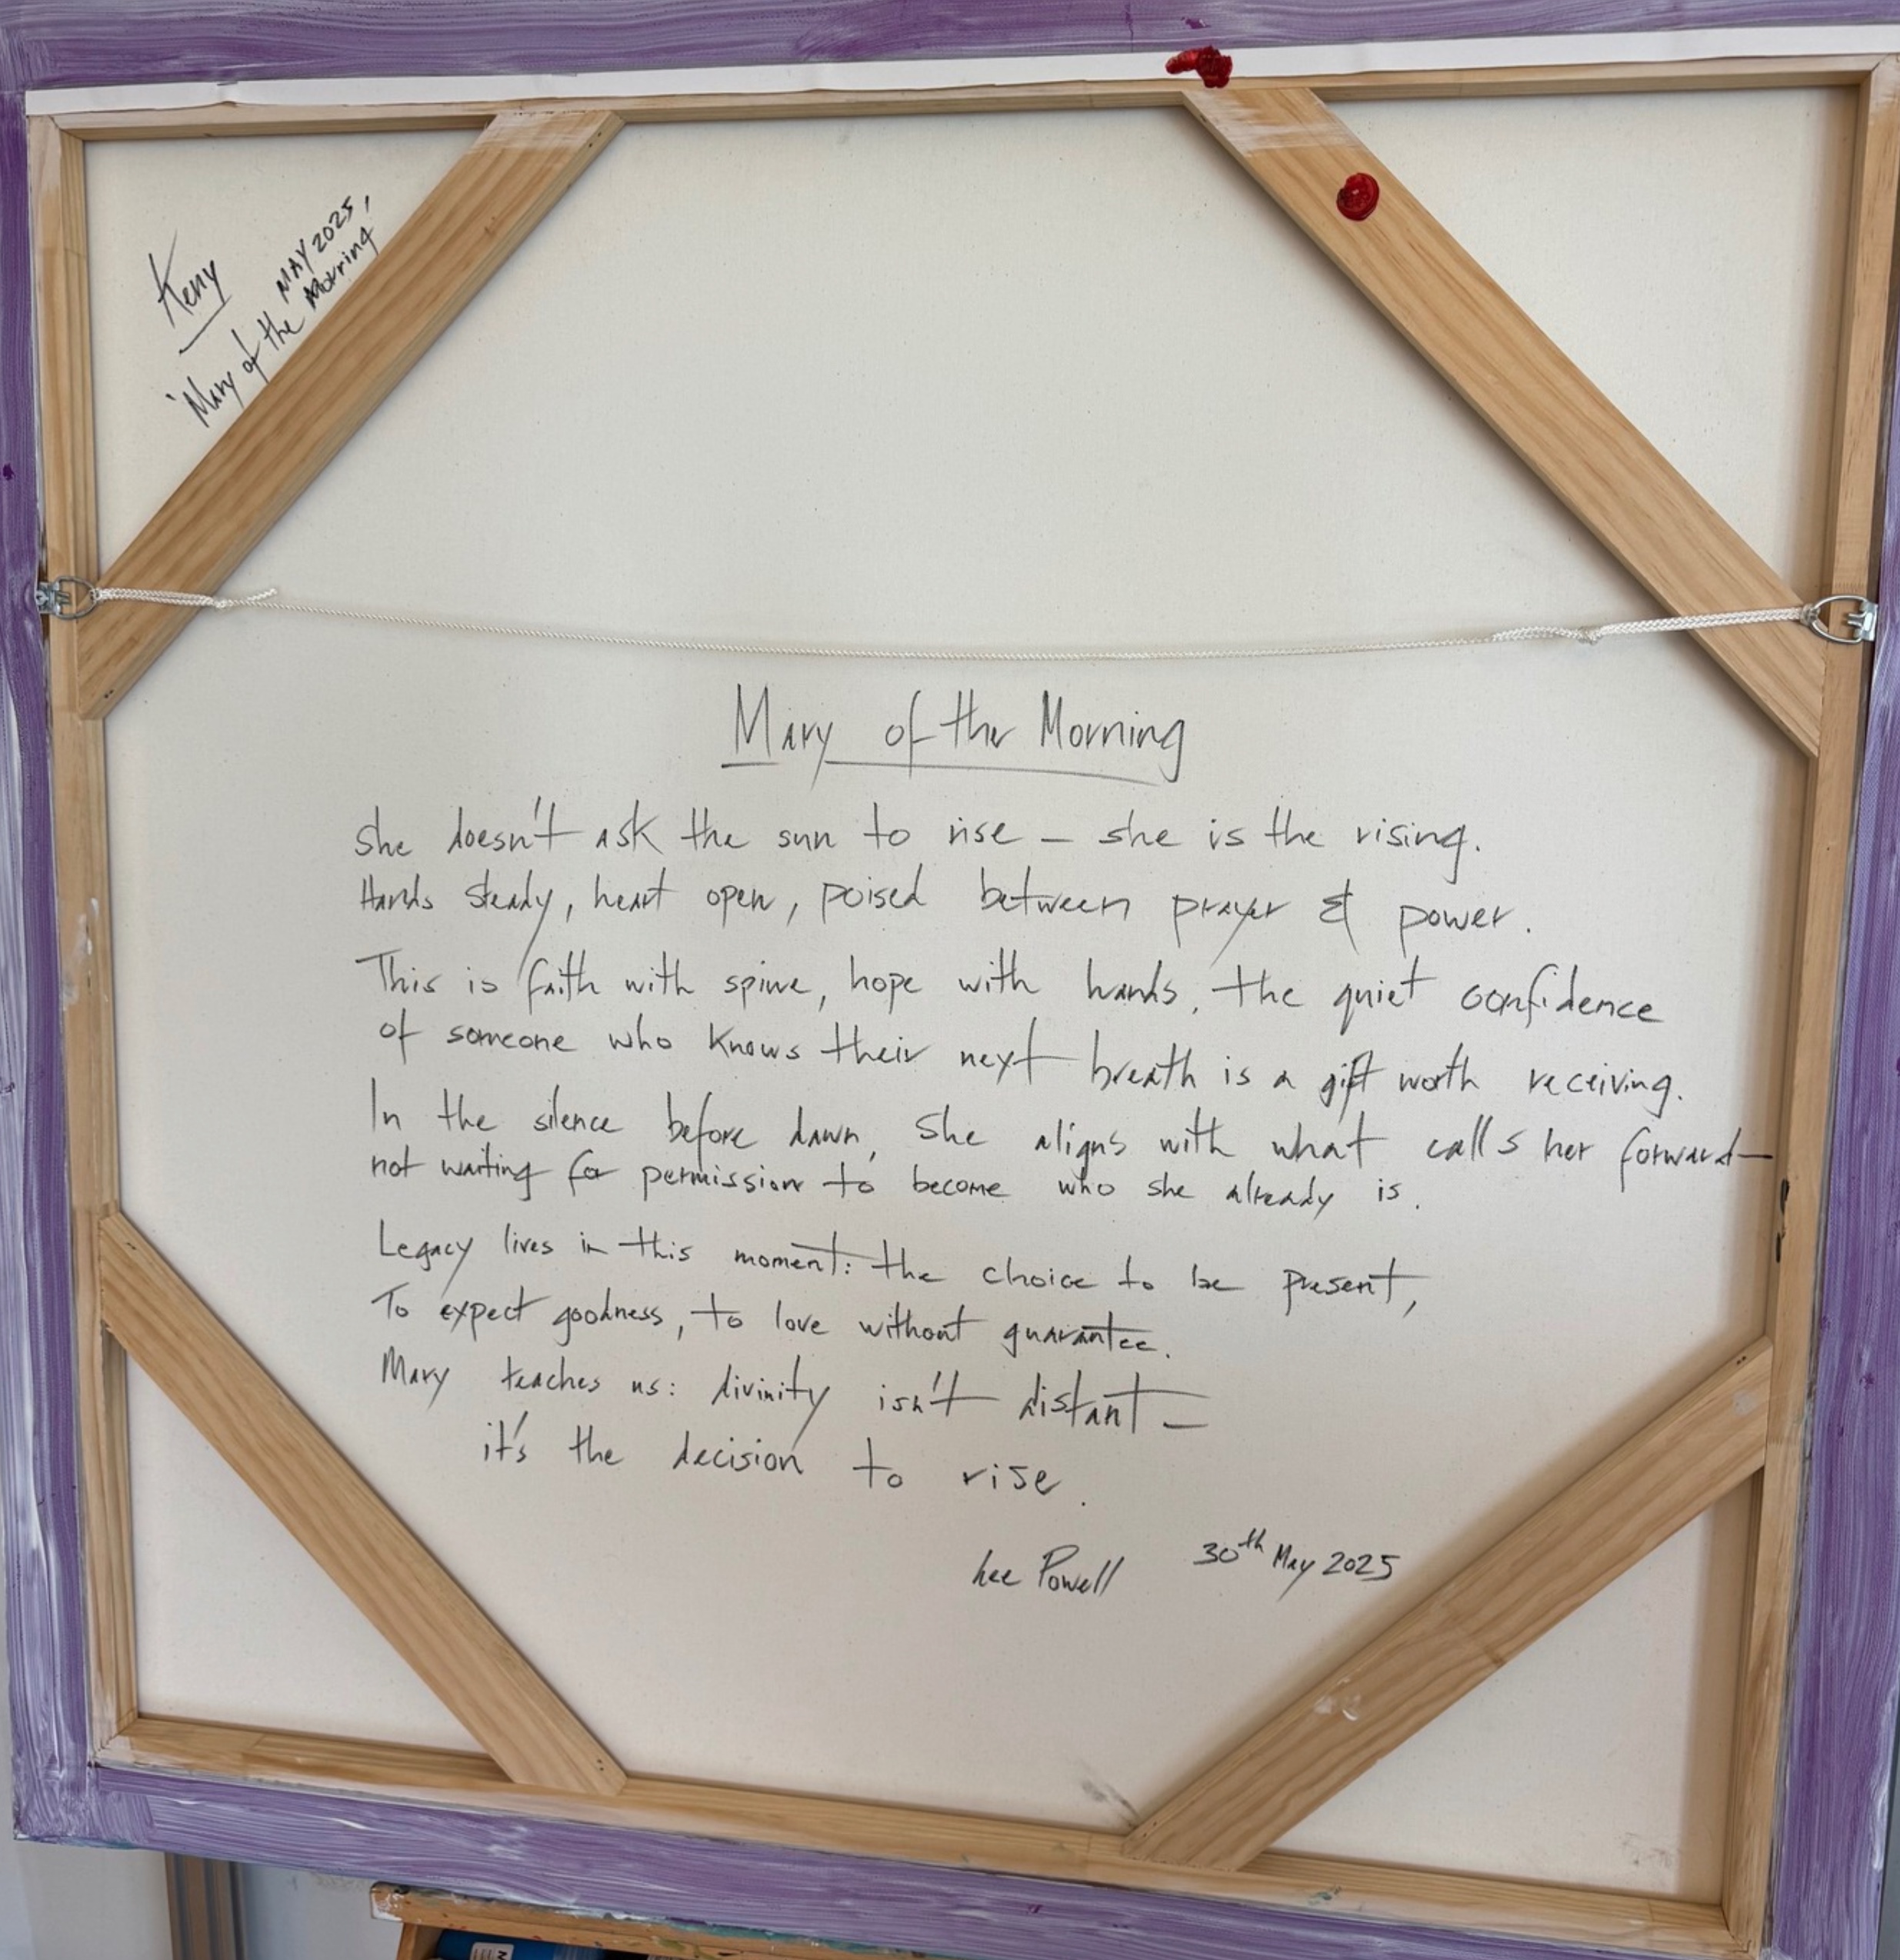 Keny
MAY 2025,
'Mary of the Morning
Mary of the Morning
She doesn't ask the sun to rise – she is the rising.
Hands steady, heart open, poised between prayer & power.
This is faith with spine, hope with hands, the quiet confidence
of someone who knows their next breath is a gift worth receiving.
In the silence before dawn, she aligns with what calls her forward–
not waiting for permission to become who she already is.
Legacy lives in this moment: the choice to be present,
To expect goodness, to love without guarantee.
Mary teaches us: divinity isn't distant –
it's the decision to rise.
Lee Powell 30th May 2025